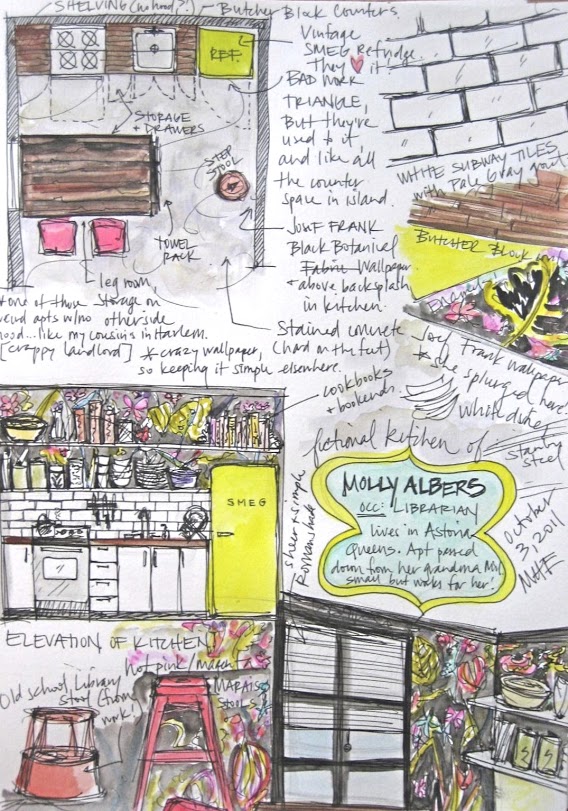 SHELVING (no hood?!)
Butcher Block Counters.
REF.
Vintage
SMEG Refridge.
They ❤ it!
BAD WORK
TRIANGLE,
But they're
used to it,
and like all
the counter
space in island.
STORAGE
+ DRAWERS
STEP
STOOL
TOWEL
RACK
leg room,
Storage on
otherside
*one of those
weird apts w/no
hood...like my cousin's in Harlem.
[crappy landlord]
JOSEF FRANK
Black Botanical
Fabric Wallpaper
above backsplash
in kitchen.
Stained concrete
(hard on the feet)
*crazy wallpaper,
so keeping it simple elsewhere.
WHITE SUBWAY TILES
with Pale Gray grout
BUTCHER BLOCK
Josef Frank Wallpaper
*she splurged here!
white dishes
stainless
steel
cookbooks
+ bookends.
SMEG
fictional kitchen of
MOLLY ALBERS
OCC: LIBRARIAN
lives in Astoria
Queens. Apt passed
down from her grandma
small but works for her!
October
3, 2011
MHF
sheer + simple
Roman shade
ELEVATION OF KITCHEN
hot pink/magenta
MARAIS
STOOLS
Old school library
stool (from
work)